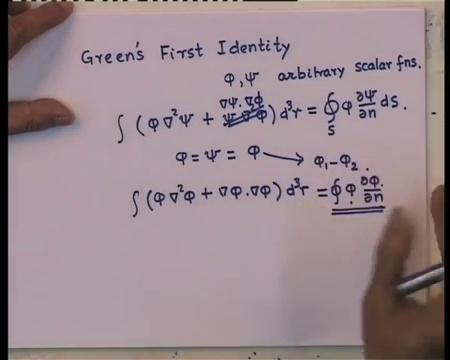 Green's First Identity
φ, ψ arbitrary scalar fns.
∇ψ.∇φ
∫ (φ∇²ψ + ψ ∇²φ) d³r = ∮ φ ∂ψ/∂n ds.
S
φ = ψ = φ → φ₁-φ₂.
∫ (φ∇²φ + ∇φ.∇φ) d³r = ∮ φ ∂φ/∂n